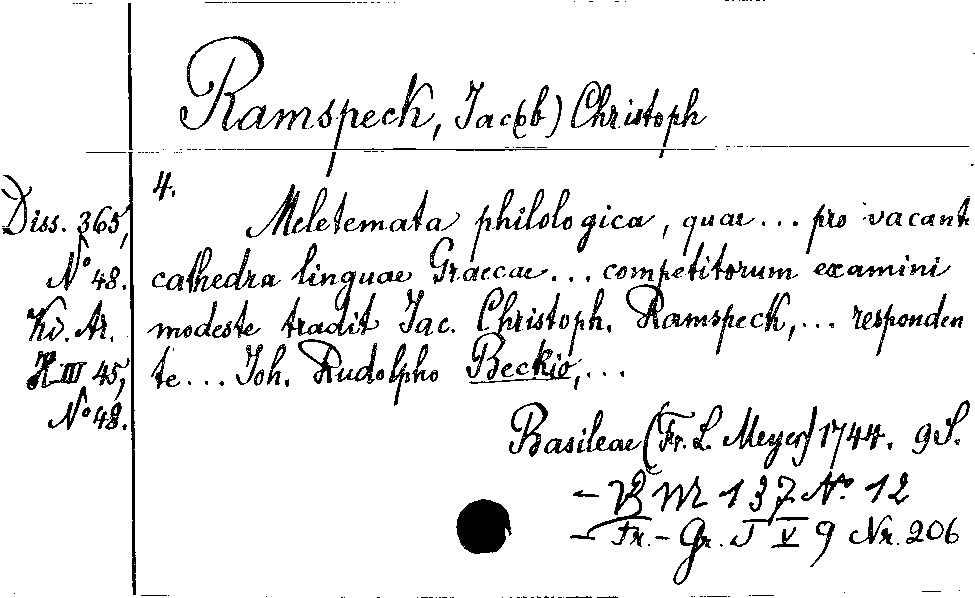 Ramspeck, Jac(ob) Christoph
4.
Diss. 365,
N° 48.
Ki. Ar.
H III 45,
N° 48.
Meletemata philologica, quae ... pro vacant
cathedra linguae Graecae ... competitorum examini
modeste tradit Jac. Christoph. Ramspeck, ... responden
te ... Joh. Rudolpho Beckio, ...
Basileae (Fr. L. Meyer) 1744. 9 S.
- VB M 137 N° 12
- Fr. - Gr. J V 9 Nr. 206